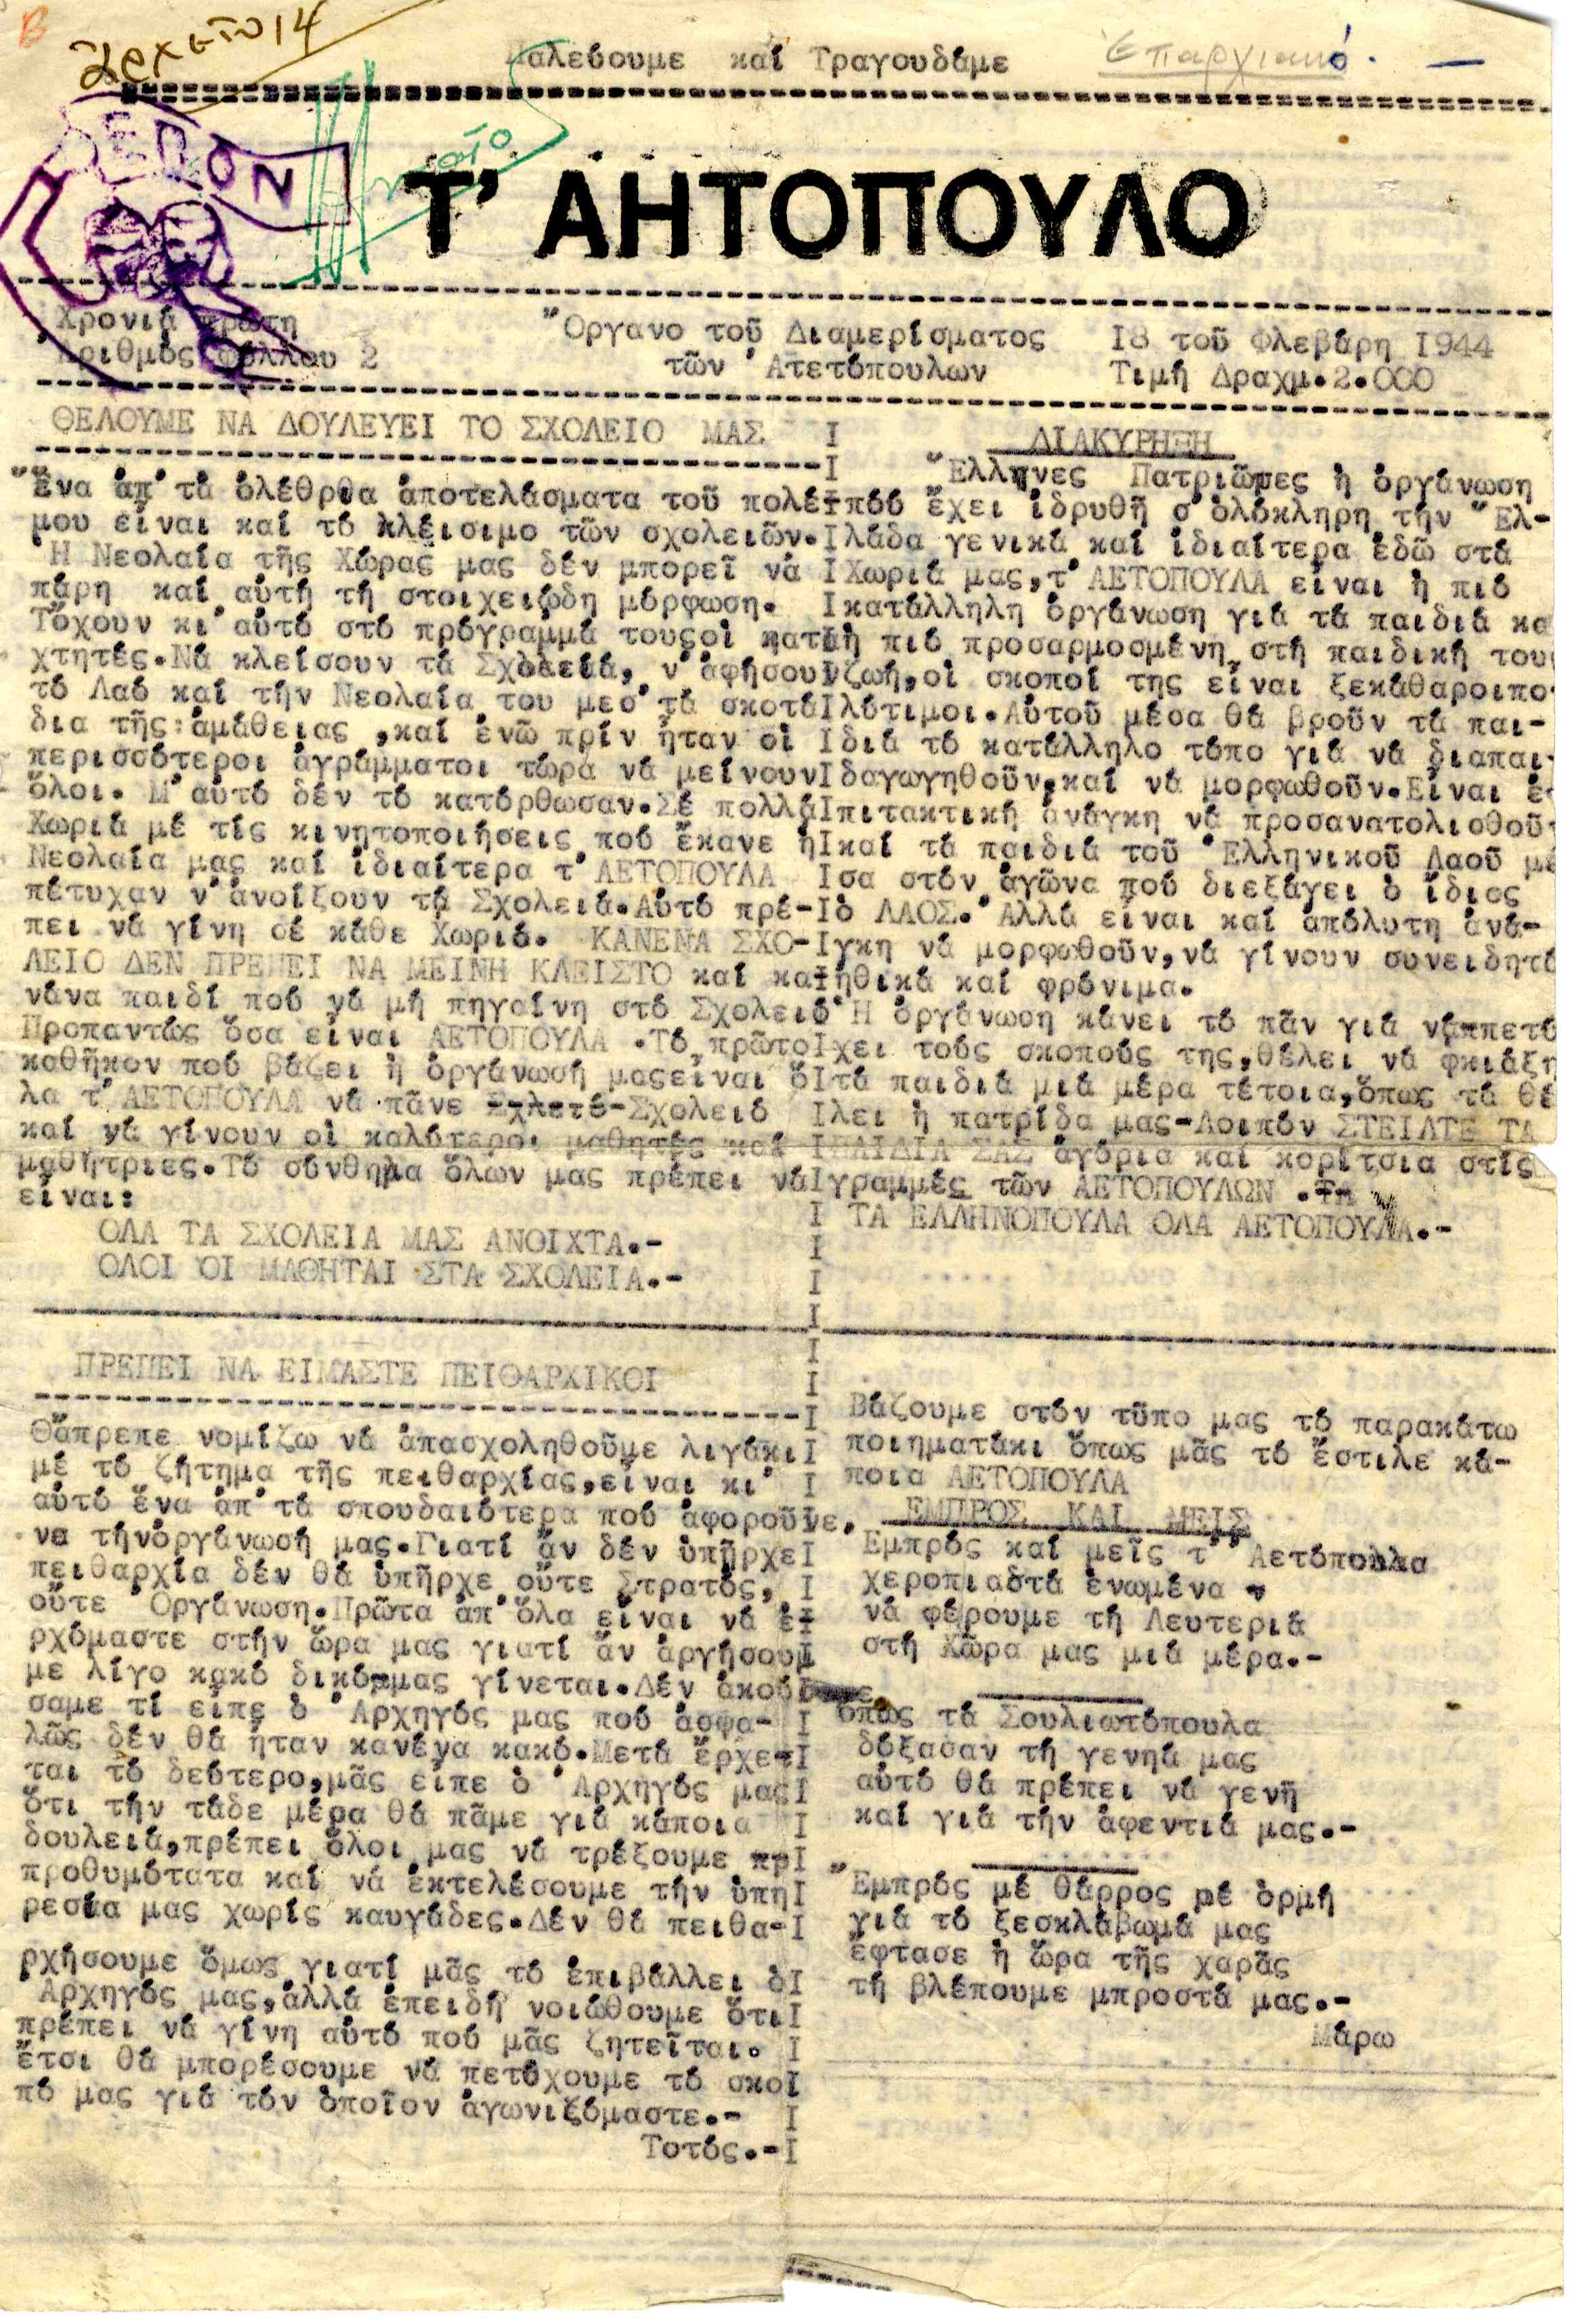 Β
Αρχείο 14
Παλεύουμε καί Τραγουδᾶμε
Ἐπαρχιακό. —
ΕΠΟΝ
Τ' ΑΗΤΟΠΟΥΛΟ
Χρονιά πρώτη
Ἀριθμός φύλλου 2
Ὄργανο τοῦ Διαμερίσματος
τῶν Ἀτετόπουλων
I8 τοῦ Φλεβάρη I944
Τιμή Δραχμ.2.000
ΘΕΛΟΥΜΕ ΝΑ ΔΟΥΛΕΥΕΙ ΤΟ ΣΧΟΛΕΙΟ ΜΑΣ
Ἕνα ἀπ' τά ὀλέθρθα ἀποτελάσματα τοῦ πολέ-
μου εἶναι καί τό κλείσιμο τῶν σχολειῶν.
Ἡ Νεολαία τῆς Χώρας μας δέν μπορεῖ νά
πάρη καί αὐτή τή στοιχειώδη μόρφωση.
Τὄχουν κι' αὐτό στό πρόγραμμά τουςοἱ κατα
χτητές.Νά κλείσουν τά Σχολειά, ν'ἀφήσουν
τό Λαό καί τήν Νεολαία του μεσ' τά σκοτά
δια τῆς:ἀμάθειας ,καί ἐνῶ πρίν ἦταν οἱ
περισσότεροι ἀγράμματοι τώρα νά μείνουν
ὅλοι. Μ'αὐτό δέν τό κατόρθωσαν.Σέ πολλά
Χωριά μέ τίς κινητοποιήσεις πού ἔκανε ἡ
Νεολαία μας καί ἰδιαίτερα τ'ΑΕΤΟΠΟΥΛΑ
πέτυχαν ν'ἀνοίξουν τά Σχολειά.Αὐτό πρέ-
πει νά γίνη σέ κάθε Χωριό. ΚΑΝΕΝΑ ΣΧΟ-
ΛΕΙΟ ΔΕΝ ΠΡΕΠΕΙ ΝΑ ΜΕΙΝΗ ΚΛΕΙΣΤΟ καί κα-
νάνα παιδί πού νά μή πηγαίνη στό Σχολειό
Προπαντώς ὅσα εἶναι ΑΕΤΟΠΟΥΛΑ .Τό πρῶτο
καθῆκον πού βάζει ἡ ὀργάνωσή μαςεἶναι ὅ
λα τ'ΑΕΤΟΠΟΥΛΑ νά πᾶνε Σχλετό-Σχολειό
καί νά γίνουν οἱ καλύτεροι μαθητές καί
μαθήτριες.Τό σύνθημα ὅλων μας πρέπει νά
εἶναι:
ΟΛΑ ΤΑ ΣΧΟΛΕΙΑ ΜΑΣ ΑΝΟΙΧΤΑ.-
ΟΛΟΙ ΟΙ ΜΑΘΗΤΑΙ ΣΤΑ ΣΧΟΛΕΙΑ.-
ΔΙΑΚΥΡΗΞΗ
Ἕλληνες Πατριῶτες ἡ ὀργάνωση
πού ἔχει ἱδρυθῆ σ'ὁλόκληρη τήν Ἑλ-
λάδα γενικά καί ἰδιαίτερα ἐδῶ στά
Χωριά μας,τ'ΑΕΤΟΠΟΥΛΑ εἶναι ἡ πιό
κατάλληλη ὀργάνωση γιά τά παιδιά κα
ἡ πιό προσαρμοσμένη στή παιδική του
ζωή,οἱ σκοποί της εἶναι ξεκάθαροιπο
λύτιμοι.Αὐτοῦ μέσα θά βροῦν τά παι-
διά τό κατάλληλο τόπο γιά νά διαπαι
δαγωγηθοῦν,καί νά μορφωθοῦν.Εἶναι ἐ
πιτακτική ἀνάγκη νά προσανατολισθοῦ
καί τά παιδιά τοῦ Ἑλληνικοῦ Λαοῦ μέ
σα στόν ἀγῶνα πού διεξάγει ὁ ἴδιος
ὁ ΛΑΟΣ. Ἀλλά εἶναι καί ἀπόλυτη ἀνά-
γκη νά μορφωθοῦν,νά γίνουν συνειδητά
ἠθικά καί φρόνιμα.
Ἡ ὀργάνωση κάνει τό πᾶν γιά νάππετύ
χει τούς σκοπούς της,θέλει νά φκιάξη
τά παιδιά μιά μέρα τέτοια,ὅπως τά θέ
λει ἡ πατρίδα μας-Λοιπόν ΣΤΕΙΛΤΕ ΤΑ
ΠΑΙΔΙΑ ΣΑΣ ἀγόρια καί κορίτσια στίς
γραμμές τῶν ΑΕΤΟΠΟΥΛΩΝ .Τα
ΤΑ ΕΛΛΗΝΟΠΟΥΛΑ ΟΛΑ ΑΕΤΟΠΟΥΛΑ.-
ΠΡΕΠΕΙ ΝΑ ΕΙΜΑΣΤΕ ΠΕΙΘΑΡΧΙΚΟΙ
Θἄπρεπε νομίζω νά ἀπασχοληθοῦμε λιγάκι
μέ τό ζήτημα τῆς πειθαρχίας,εἶναι κι'
αὐτό ἕνα ἀπ'τά σπουδαιότερα πού ἀφοροῦνε.
να τήνὀργάνωσή μας.Γιατί ἄν δέν ὑπῆρχε
πειθαρχία δέν θά ὑπῆρχε οὔτε Στρατός,
οὔτε Ὀργάνωση.Πρῶτα ἀπ'ὅλα εἶναι νά ἐ-
ρχόμαστε στήν ὥρα μας γιατί ἄν ἀργήσουμ
με λίγο κακό δικόςμας γίνεται.Δέν ἀκού
σαμε τί εἶπε ὁ Ἀρχηγός μας πού ἀσφα-
λῶς δέν θά ἦταν κανένα κακό.Μετά ἔρχε-
ται τό δεύτερο,μᾶς εἶπε ὁ Ἀρχηγός μας
ὅτι τήν τάδε μέρα θά πᾶμε γιά κάποια
δουλειά,πρέπει ὅλοι μας νά τρέξουμε πρ
προθυμότατα καί νά ἐκτελέσουμε τήν ὑπη
ρεσία μας χωρίς καυγάδες.Δέν θά πειθα-
ρχήσουμε ὅμως γιατί μᾶς τό ἐπιβάλλει ὁ
Ἀρχηγός μας,ἀλλά ἐπειδή νοιώθουμε ὅτι
πρέπει νά γίνη αὐτό πού μᾶς ζητεῖται.
ἔτσι θά μπορέσουμε νά πετύχουμε τό σκο
πό μας γιά τόν ὁποῖον ἀγωνιζόμαστε.-
Τοτός.-
Βάζουμε στόν τῦπο μας τό παρακάτω
ποιηματάκι ὅπως μᾶς τό ἔστιλε κά-
ποια ΑΕΤΟΠΟΥΛΑ
ΕΜΠΡΟΣ ΚΑΙ ΜΕΙΣ
Ἐμπρός καί μεῖς τ' Ἀετόπουλλα
χεροπιαστά ἑνωμένα
νά φέρουμε τή Λευτεριά
στή Χώρα μας μιά μέρα.-
ὅπως τά Σουλιωτόπουλα
δόξασαν τή γενηά μας
αὐτό θά πρέπει νά γενῆ
καί γιά τήν ἀφεντιά μας.-
Ἐμπρός μέ θάρρος μέ ὁρμή
γιά τό ξεσκλάβωμά μας
ἔφτασε ἡ ὥρα τῆς χαρᾶς
τή βλέπουμε μπροστά μας.-
Μάρω